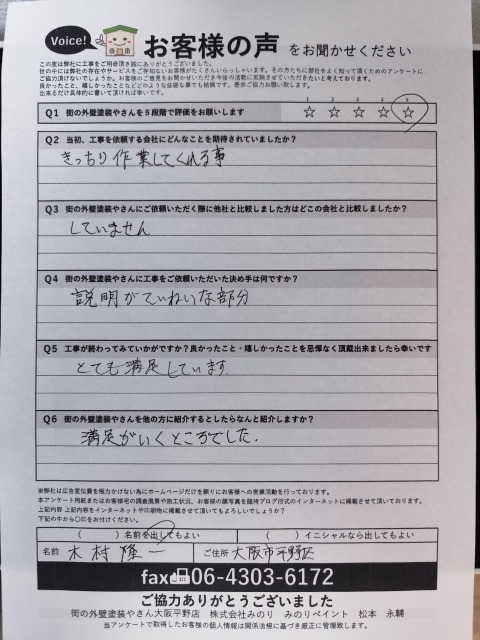 Voice!
お客様の声 をお聞かせください
この度は弊社に工事をご用命頂き誠にありがとうございました。
世の中には弊社の存在やサービスをご存知ないお客様がたくさんいらっしゃいます。その方たちに弊社をよく知って頂くためのアンケートに
ご協力頂けないでしょうか。お客様のご意見をお聞かせいただき今後の活動に反映させていただきたいと考えております。
良かったこと、嬉しかったことなどどのような些細な事でも結構です。是非ご協力お願い致します。
出来るだけ具体的に書いて頂ければ幸いです。
1 2 3 4 5
Q1 街の外壁塗装やさんを5段階で評価をお願いします ☆ ☆ ☆ ☆ ☆
Q2 当初、工事を依頼する会社にどんなことを期待されていましたか？
きっちり作業してくれる事
Q3 街の外壁塗装やさんにご依頼いただく際に他社と比較しました方はどこの会社と比較しましたか？
していません
Q4 街の外壁塗装やさんに工事をご依頼いただいた決め手は何ですか？
説明がていねいな部分
Q5 工事が終わってみていかがですか？良かったこと・嬉しかったことを忌憚なく頂戴出来ましたら幸いです
とても満足しています.
Q6 街の外壁塗装やさんを他の方に紹介するとしたらなんと紹介しますか？
満足がいくところでした.
※弊社は広告宣伝費を極力かけない為にホームページだけを頼りにお客様への営業活動を行っております。
本アンケート用紙またはお客様宅の調査風景や施工状況、お客様の顔写真を随時ブログ形式のインターネットに掲載させて頂いております。
上記内容をインターネットや印刷物に掲載させて頂いてもよろしいでしょうか？
下記の中から〇印をお付けください。
（ ）名前を出してもよい （ ）イニシャルなら出してもよい
名前 木村隆一 ご住所 大阪市平野区
fax 06-4303-6172
ご協力ありがとうございました
街の外壁塗装やさん大阪平野店 株式会社みのり みのりペイント 松本 永輔
当アンケートで取得したお客様の個人情報は関係法規に基づき厳正に管理致します。